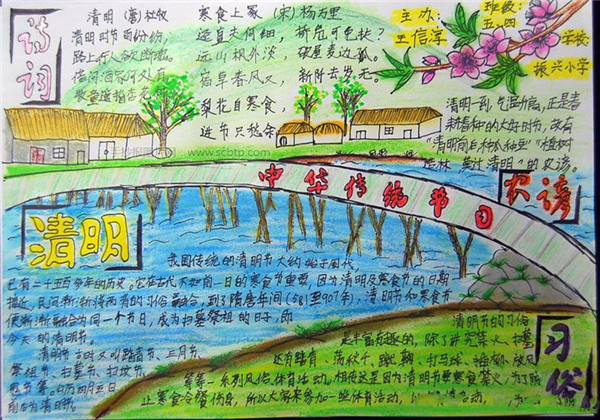 诗词
清明 (唐) 杜牧
清明时节雨纷纷,
路上行人欲断魂。
借问酒家何处有
牧童遥指杏花村
寒食上冢 (宋) 杨万里
迳直夫何细,桥危可免扶?
远山枫外淡,破屋麦边孤。
宿草春风又,新阡去岁无。
梨花自寒食,
进节只愁余
主办:
王信淳
班级:
五、四
学校:
振兴小学
清明一到,气温升高,正是春
耕春种的大好时节,故有
"清明前后,种瓜种豆""植树
造林,莫过清明"的农谚。
农谚
www.scbtp.com
中华传统节日
清明
我国传统的清明节大约始于周代,
已有二千五百多年的历史。它在古代不如前一日的寒食节重要,因为清明及寒食节的日期
接近,民间渐渐将两者的习俗融合,到了隋唐年间(581至907年),清明节和寒食节
便渐渐融合为同一个节日,成为扫墓祭祖的日子,即
今天的清明节。
清明节古时又叫踏青节、三月节、
祭祖节、扫墓节、扫坟节、
鬼节等。公历四月五日
前后为清明节。
习俗!
清明节的习俗
是丰富有趣的,除了讲究禁火、扫墓
还有踏青、荡秋千、蹴鞠、打马球、插柳、放风
筝等一系列风俗体育活动。相传这是因为清明节要寒食禁火,为了防
止寒食冷餐伤身,所以大家来参加一些体育活动,